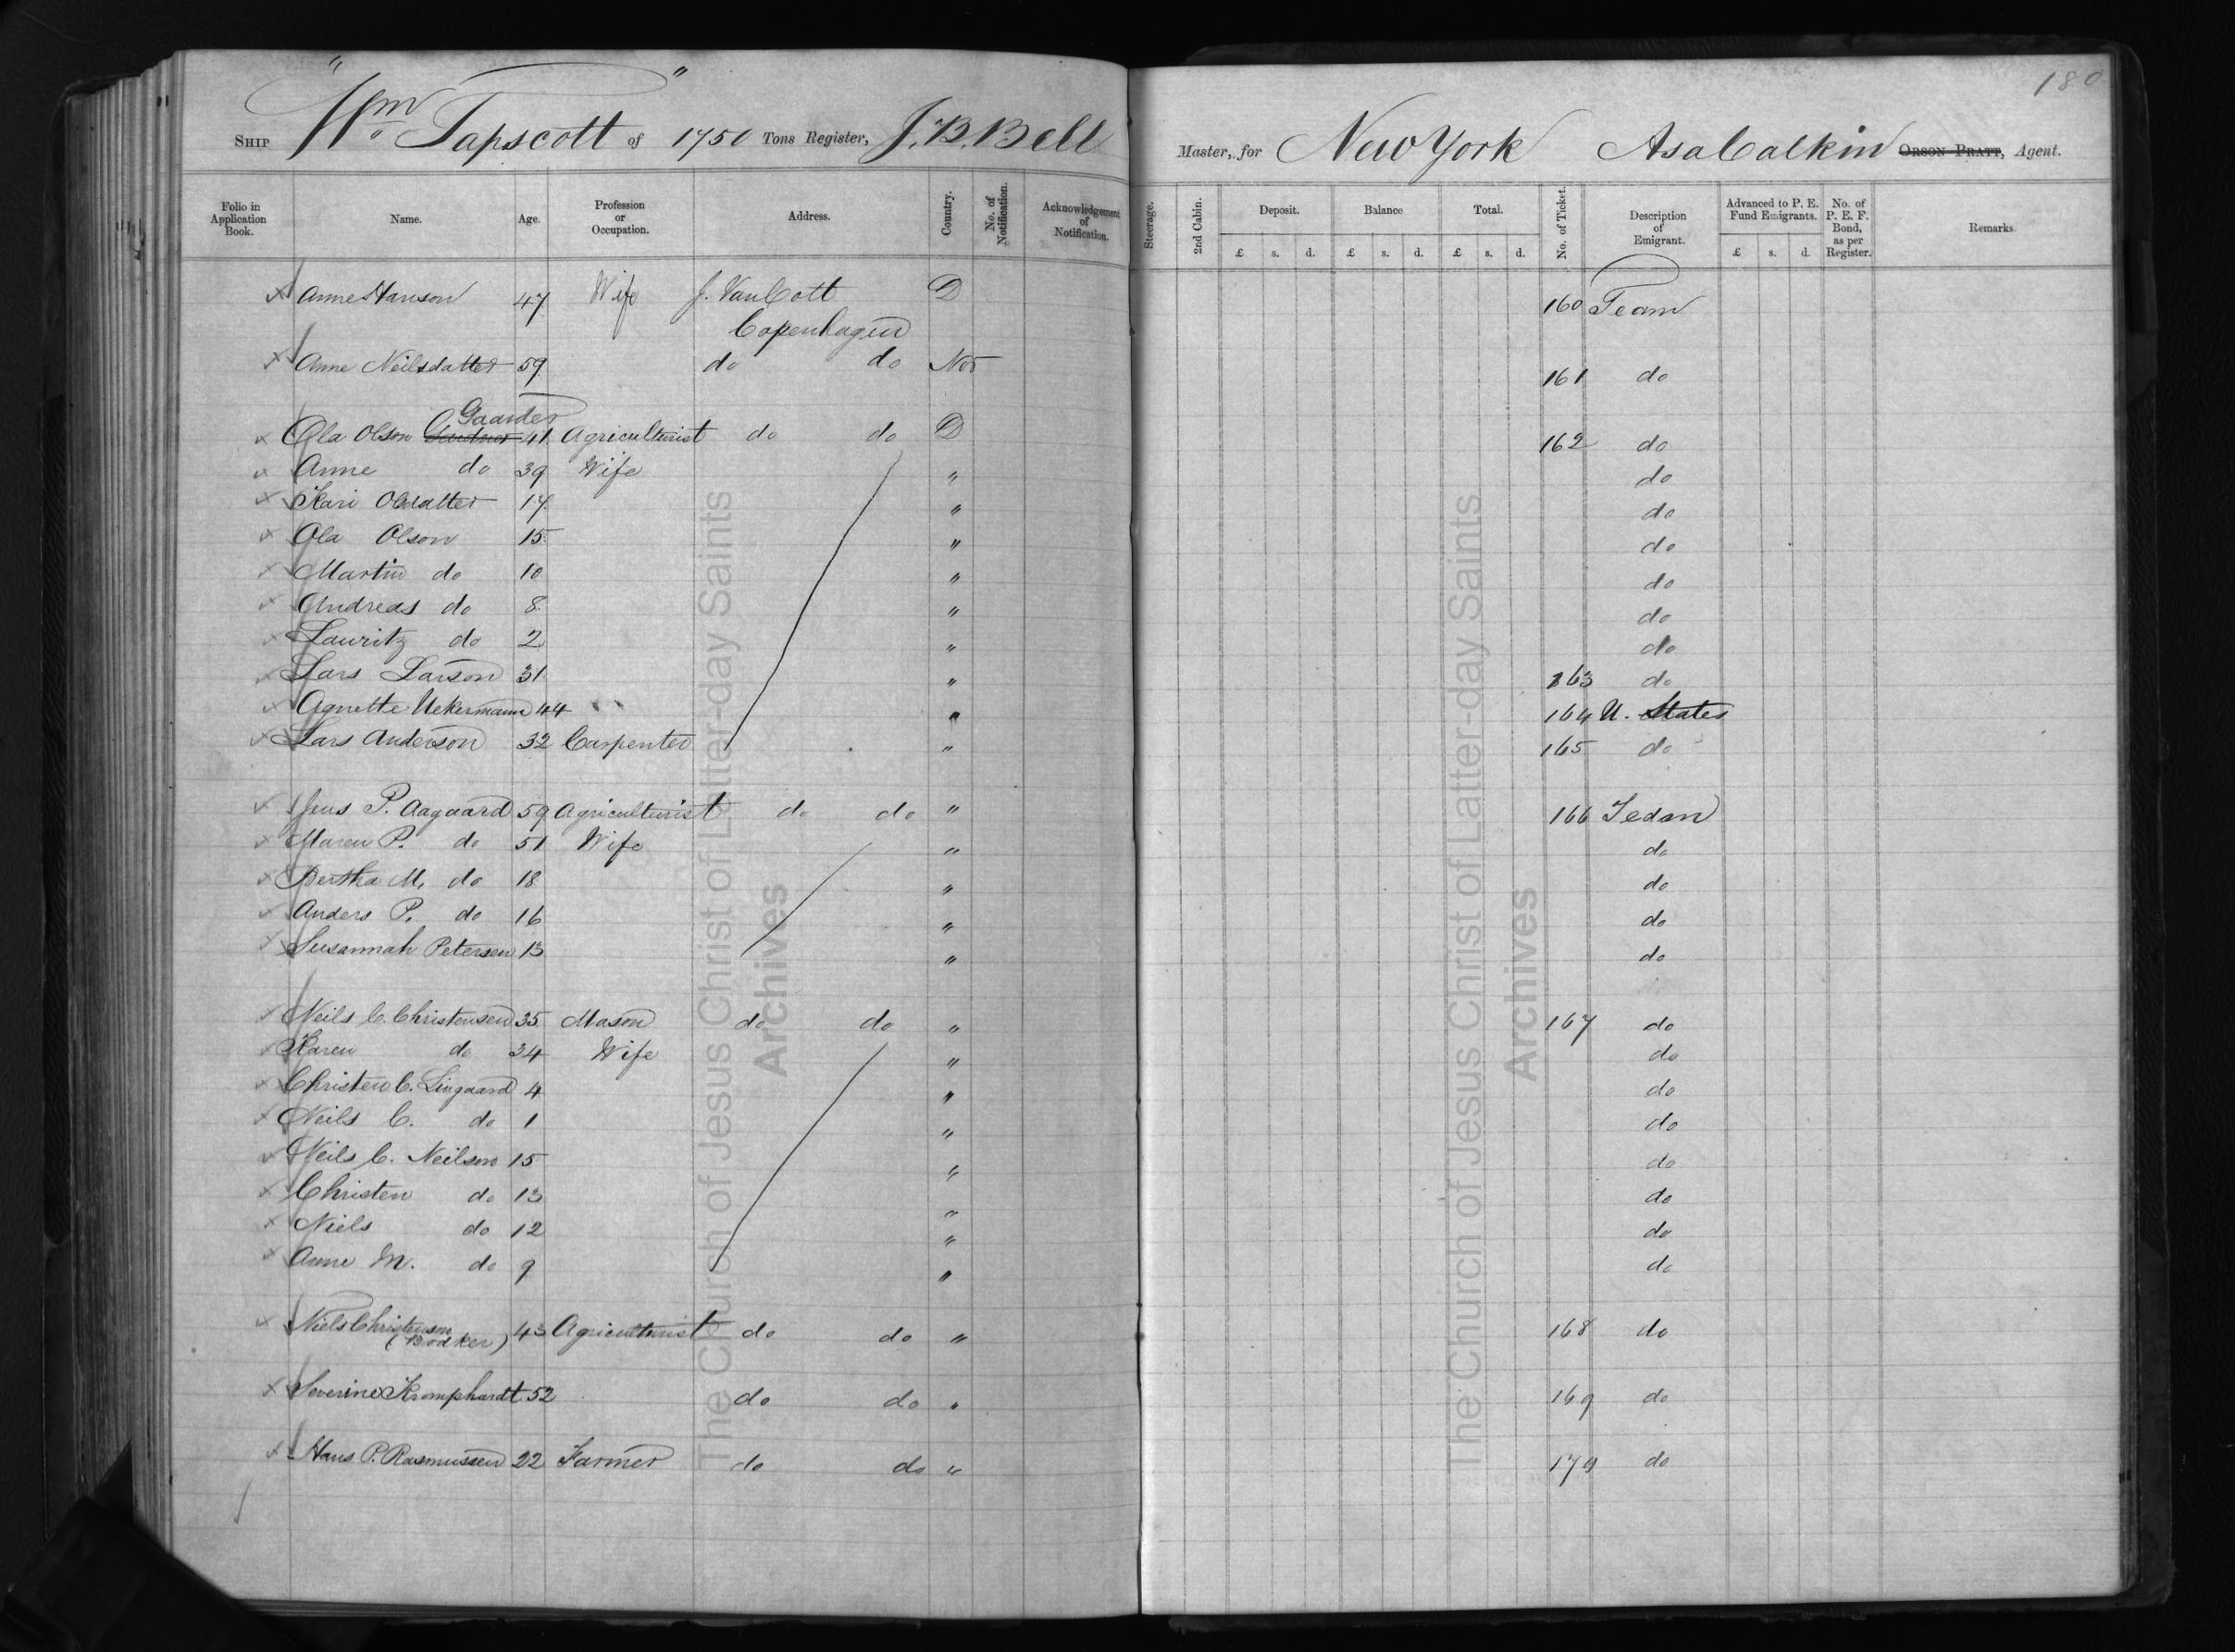 180
SHIP "Wm Tapscott" of 1750 Tons Register, J. B. Bell Master, for New York Asa Calkin ORSON PRATT, Agent.
Folio in Application Book. Name. Age. Profession or Occupation. Address. Country. No. of Notification. Acknowledgement of Notification. Steerage. 2nd Cabin. Deposit. Balance Total. No. of Ticket. Description of Emigrant. Advanced to P. E. Fund Emigrants. No. of P. E. F. Bond, as per Register. Remarks
£ s. d. £ s. d. £ s. d. £ s. d.
Anne Hanson 47 Wife J. Van Cott D 160 Team
Copenhagen
Anne Neilsdatter 59 do do Nor 161 do
Gaarder
Ola Olson 41 Agriculturist do do D 162 do
Anne do 39 Wife " do
Kari Olsdatter 17 " do
Ola Olson 15 " do
Martin do 10 " do
Andreas do 8 " do
Lauritz do 2 " do
Lars Larson 31 " 163 do
Agnette Uekermann 44 " 164 U. States
Lars Anderson 32 Carpenter " 165 do
Jens P. Aagaard 59 Agriculturist do do " 166 Tedan
Maren P. do 51 Wife " do
Bertha M. do 18 " do
Anders P. do 16 " do
Susannah Petersen 13 " do
Neils C. Christensen 35 Mason do do " 167 do
Karen do 34 Wife " do
Christen C. Lingaard 4 " do
Neils C. do 1 " do
Neils C. Neilson 15 " do
Christen do 13 " do
Niels do 12 " do
Anne M. do 9 " do
Niels Christenson 43 Agriculturist do do " 168 do
(Bodker)
Severine Kromphardt 52 do do " 169 do
Hans P. Rasmussen 22 Farmer do do " do
The Church of Jesus Christ of Latter-day Saints
Archives
The Church of Jesus Christ of Latter-day Saints
Archives